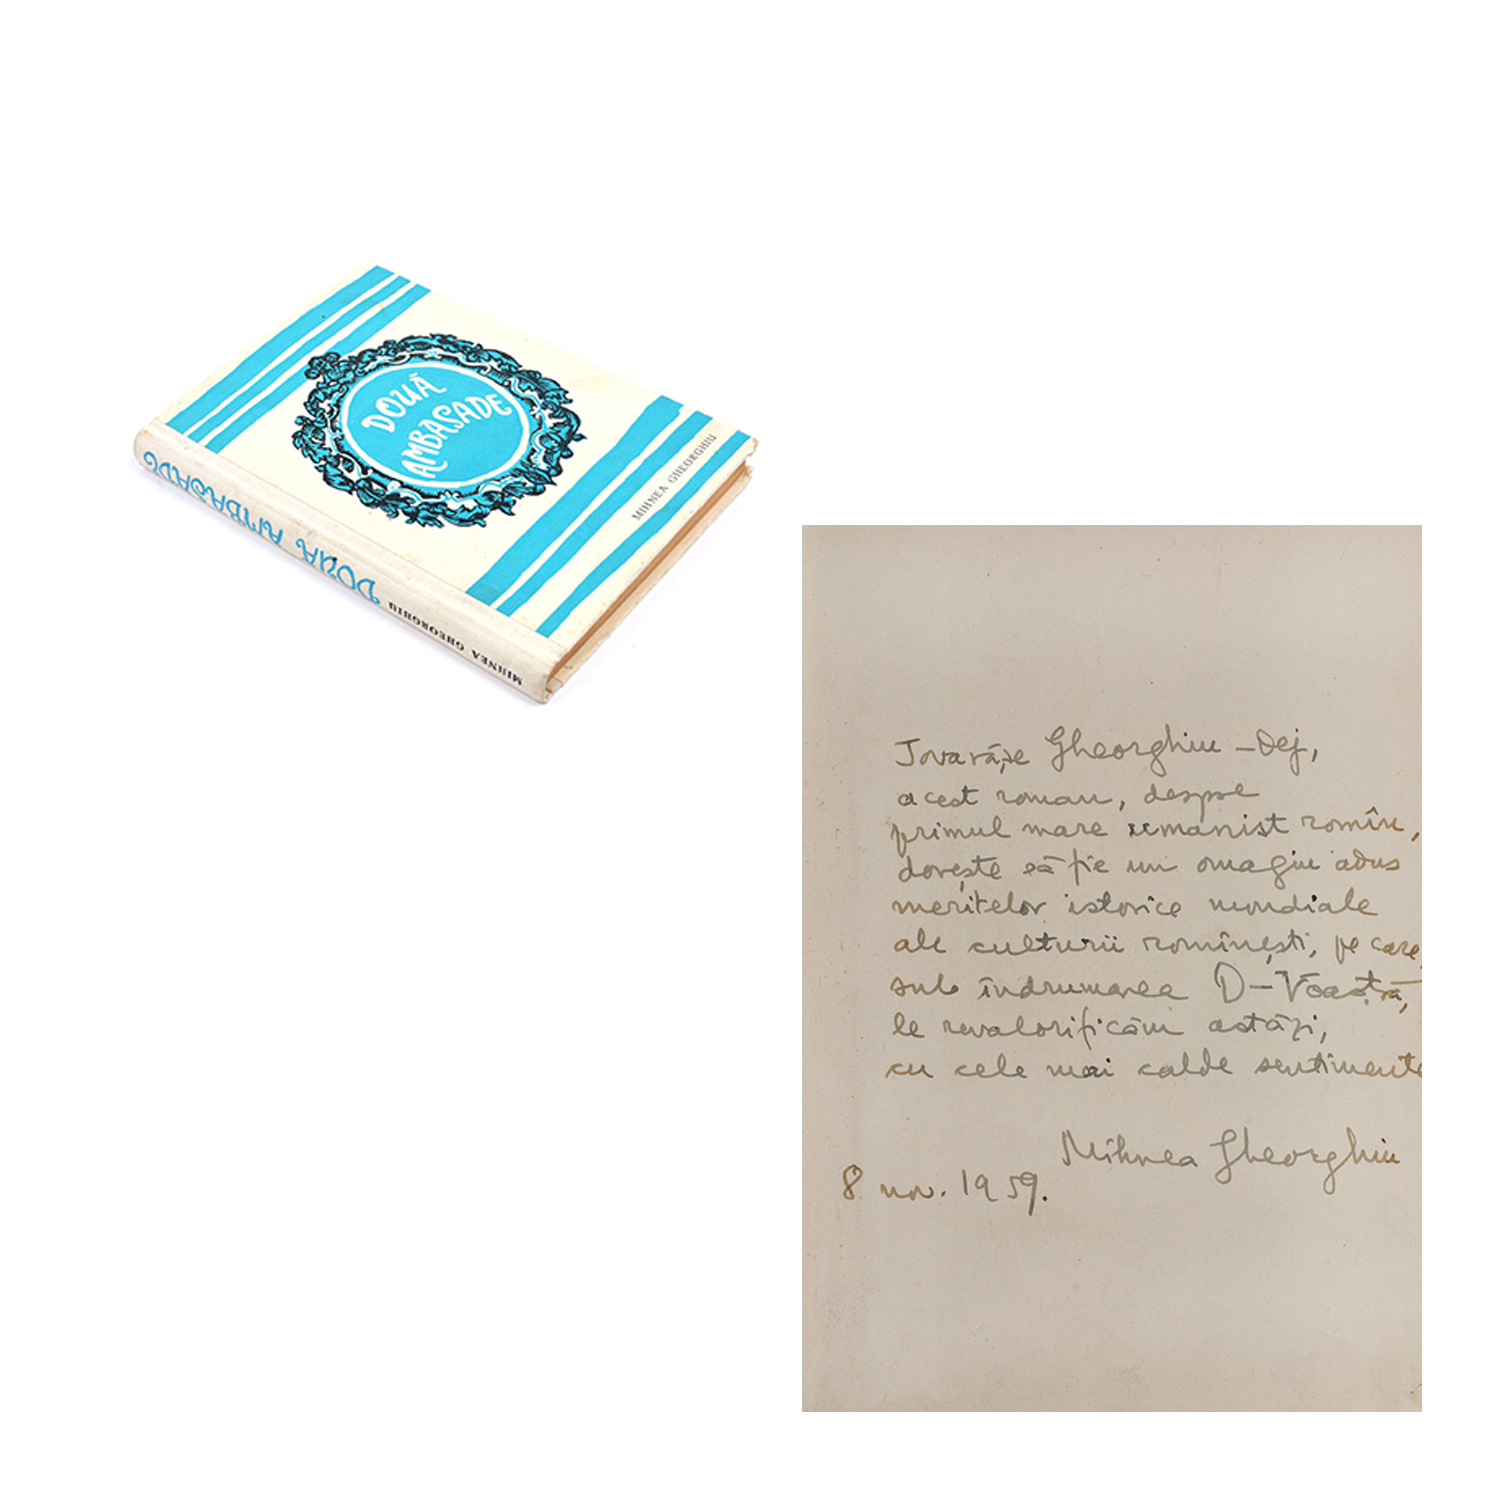 DOUĂ
AMBASADE
MIHNEA GHEORGHIU
MIHNEA GHEORGHIU DOUĂ AMBASADE
Tovarășe Gheorghiu-Dej,
acest roman, despre
primul mare umanist romîn,
dorește să fie un omagiu adus
meritelor istorice mondiale
ale culturii romînești, pe care,
sub îndrumarea D-Voastră,
le revalorificăm astăzi,
cu cele mai calde sentimente
Mihnea Gheorghiu
8 nov. 1959.